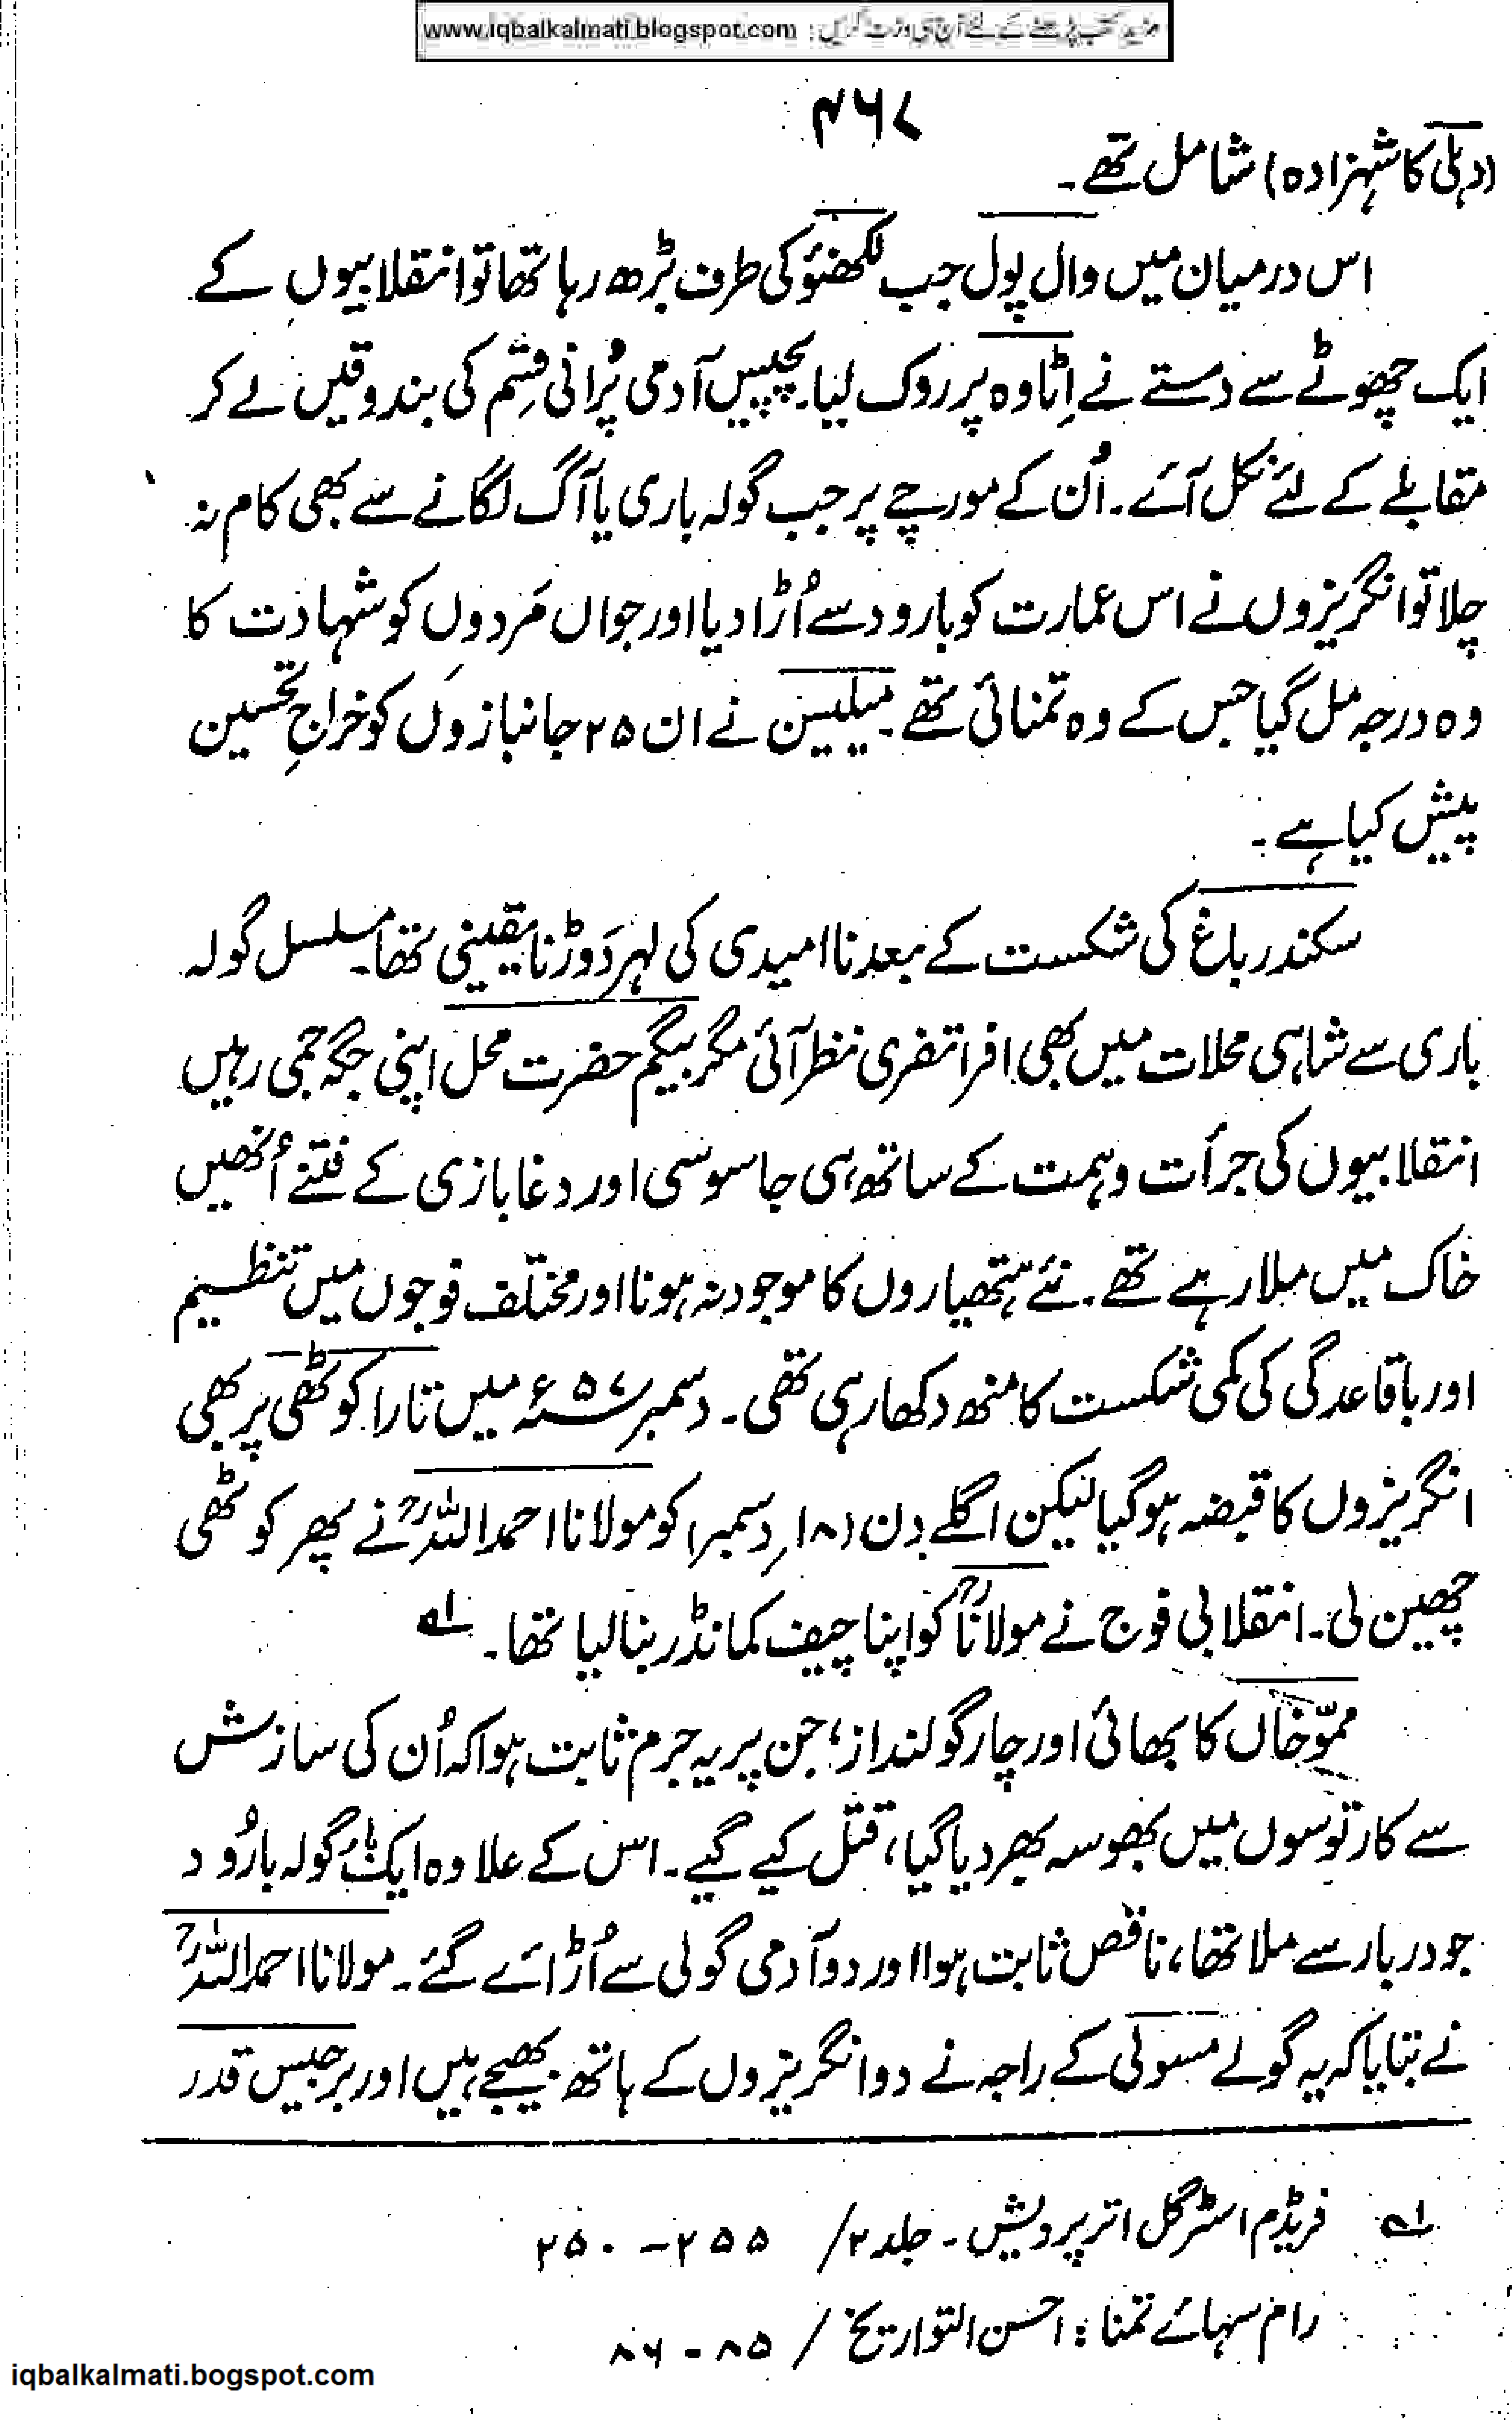 www.iqbalkalmati.blogspot.com : مزید کتب پڑھنے کے لئے آج ہی وزٹ کریں
۴۶۷
(دہلی کا شہزادہ) شامل تھے۔
اس درمیان میں وال پول جب لکھنؤ کی طرف بڑھ رہا تھا تو انقلابیوں کے
ایک چھوٹے سے دستے نے اِٹاوہ پر روک لیا۔ پچیس آدمی پُرانی قِسم کی بندوقیں لے کر
مقابلے کے لئے نکل آئے۔ اُن کے مورچے پر جب گولہ باری یا آگ لگانے سے بھی کام نہ
چلا تو انگریزوں نے اس عمارت کو بارود سے اُڑا دیا اور جواں مَردوں کو شہادت کا
وہ درجہ مل گیا جس کے وہ تمنائی تھے۔ میلیسن نے ان ۲۵ جانبازوں کو خراجِ تحسین
پیش کیا ہے۔
سکندر باغ کی شکست کے بعد ناامیدی کی لہر دَوڑنا یقینی تھا۔ مسلسل گولہ
باری سے شاہی محلات میں بھی افراتفری نظر آئی مگر بیگم حضرت محل اپنی جگہ جمی رہیں
انقلابیوں کی جرأت و ہمت کے ساتھ ہی جاسوسی اور دغابازی کے فتنے اُنھیں
خاک میں ملا رہے تھے۔ نئے ہتھیاروں کا موجود نہ ہونا اور مختلف فوجوں میں تنظیم
اور باقاعدگی کی کمی شکست کا منھ دکھا رہی تھی۔ دسمبر ۵۷ء میں تارا کوٹھی پر بھی
انگریزوں کا قبضہ ہو گیا لیکن اگلے دن (۱۸؍ دسمبر) کو مولانا احمد اللہؒ نے پھر کوٹھی
چھین لی۔ انقلابی فوج نے مولاناؒ کو اپنا چیف کمانڈر بنا لیا تھا۔ ۱؎
ممّو خاں کا بھائی اور چار گولنداز، جن پر یہ جرم ثابت ہوا کہ اُن کی سازش
سے کارتوسوں میں بھوسہ بھر دیا گیا، قتل کیے گیے۔ اس کے علاوہ ایک گولہ بارُود
جو دربار سے ملا تھا، ناقص ثابت ہوا اور دو آدمی گولی سے اُڑائے گئے۔ مولانا احمد اللہؒ
نے بتایا کہ یہ گولے مسولی کے راجہ نے دو انگریزوں کے ہاتھ بھیجے ہیں اور برجیس قدر
۱؎ فریڈم اسٹرگل اتر پردیش۔ جلد ۲/ ۲۵۵ – ۲۵۰
رام سہائے تمنا: احسن التواریخ / ۸۵ - ۸۶
iqbalkalmati.bogspot.com